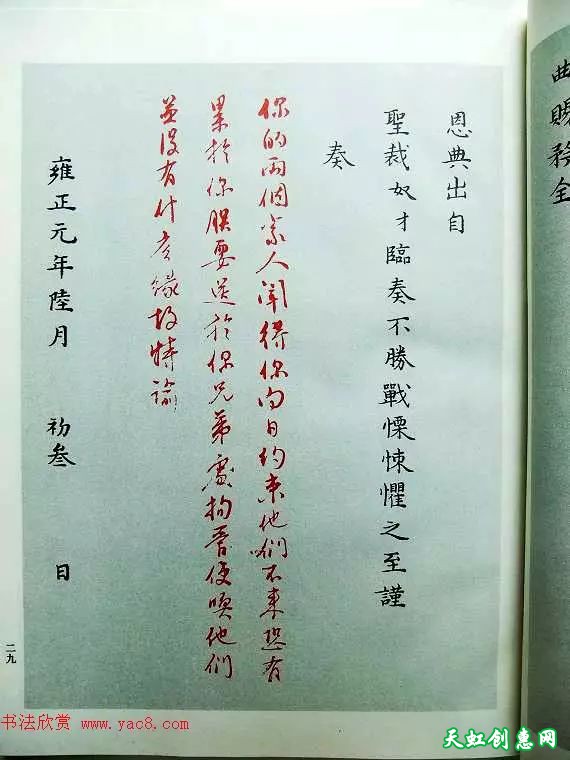 曲賜務全
恩典出自
聖裁奴才臨奏不勝戰慄悚懼之至謹
奏
你的兩個家人聞得你向日約束他们不来恐有
累於你朕要送於你兄弟處拘管使唤他们
並没有什庅緣故特諭
雍正元年陸月 初叁 日
二九
书法欣赏 www.yac8.com
天虹创惠网